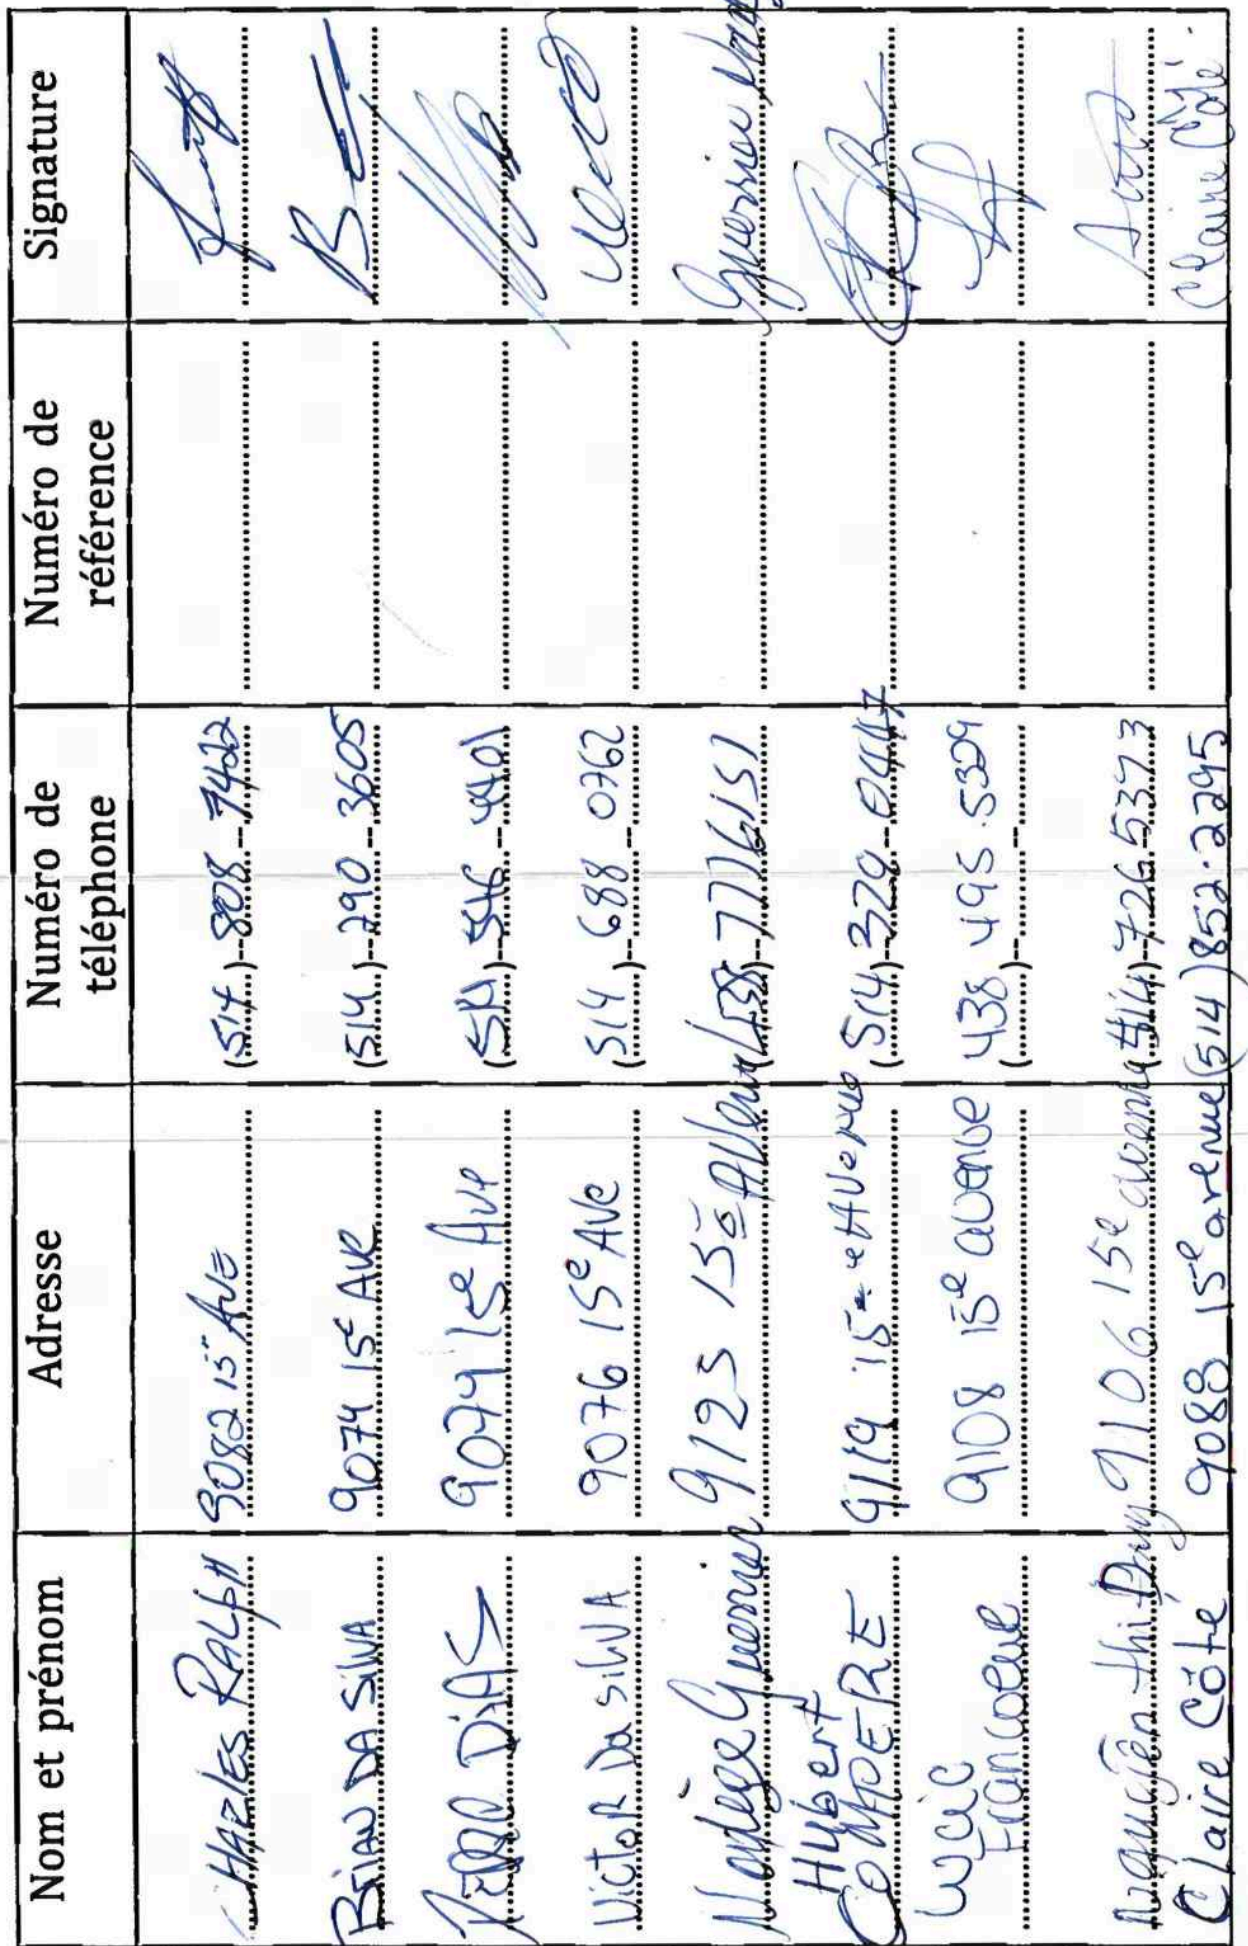 Nom et prénom Adresse Numéro de téléphone Numéro de référence Signature
CHARLES RALPH 9082 15e AVE (514) 808 - 7422
BRIAN DA SILVA 9074 15e AVE (514) 290 - 3605
DIAS 9074 15e Ave (514) 546 - 4401
VICTOR Da SILVA 9076 15e AVe 514 688 0762
Nadège Guerrier 9125 15e Avenue (438) 7776151 Guerrier
Hybert COMPERE 9119 15e Avenue (514) 370-0447
Francoeur 9108 15e avenue 438 495.5329
thi 9106 15e avenue (514) 726 5373
Claire Côté 9088 15e avenue (514) 852.2295 Claire Côté